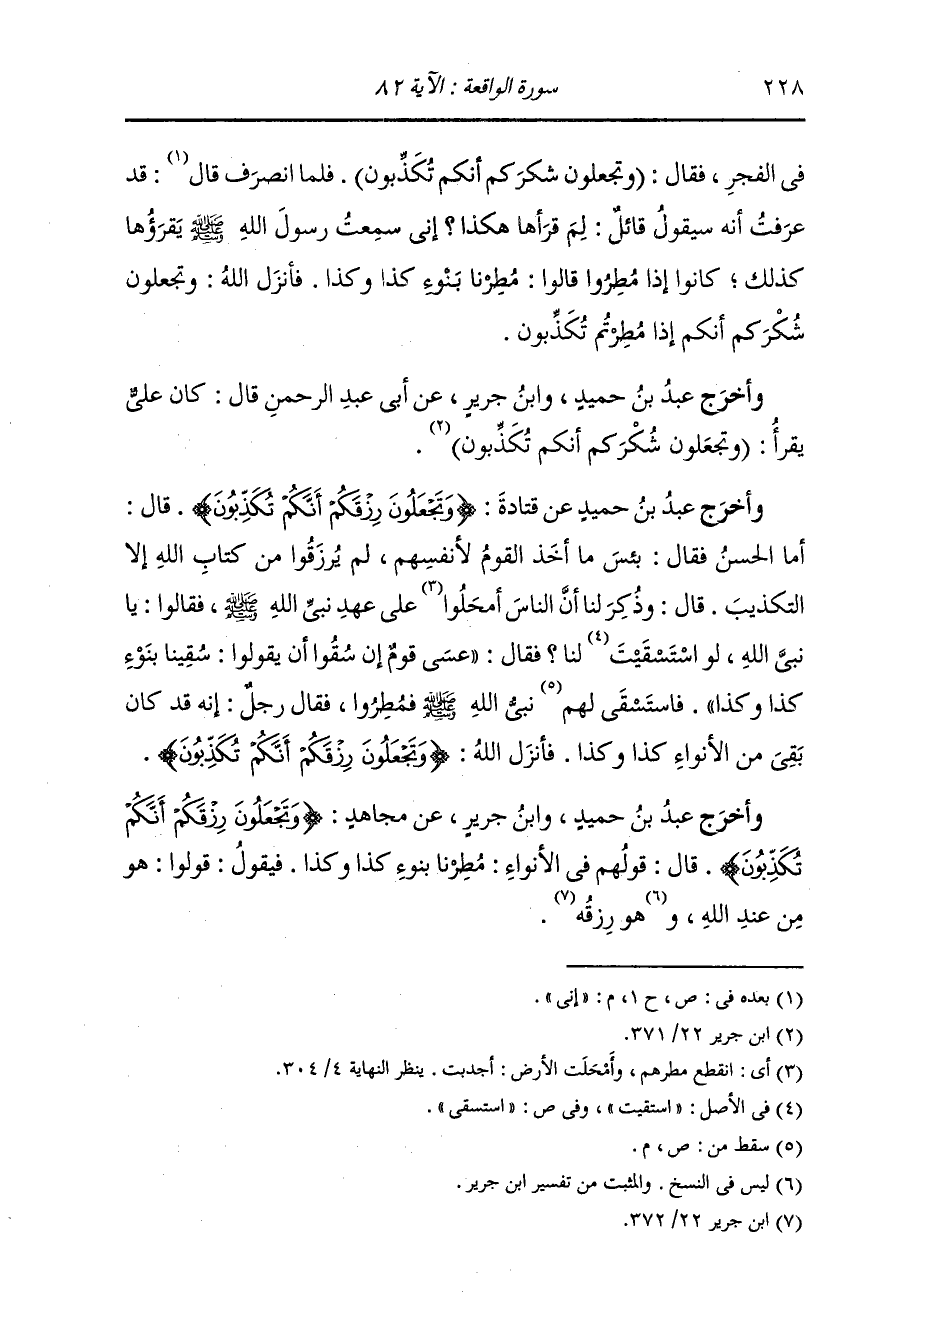 ٢٢٨ سورة الواقعة : الآية ٨٢
فى الفجرِ ، فقال : (وتجعلون شكرَكم أنكم تُكَذِّبون) . فلما انصرَف قال(١) : قد
عرَفتُ أنه سيقولُ قائلٌ : لِمَ قرَأها هكذا ؟ إنى سمِعتُ رسولَ اللهِ ﷺ يَقرَؤُها
كذلك ؛ كانوا إذا مُطِرُوا قالوا : مُطِرْنا بَنْوءِ كذا وكذا . فأنزَل اللهُ : وتجعلون
شُكْرَكم أنكم إذا مُطِرْتُم تُكَذِّبون .
وأخرَج عبدُ بنُ حميدٍ ، وابنُ جريرٍ ، عن أبى عبدِ الرحمنِ قال : كان علىٌّ
يقرأُ : (وتجعَلون شُكْرَكم أنكم تُكَذِّبون)(٢) .
وأخرَج عبدُ بنُ حميدٍ عن قتادةَ : ﴿وَتَجْعَلُونَ رِزْقَكُمْ أَنَّكُمْ تُكَذِّبُونَ﴾ . قال :
أما الحسنُ فقال : بئسَ ما أخَذ القومُ لأنفسِهم ، لم يُرزَقُوا من كتابِ اللهِ إلا
التكذيبَ . قال : وذُكِرَ لنا أنَّ الناسَ أمحَلُوا(٣) على عهدِ نبىِّ اللهِ ﷺ ، فقالوا : يا
نبىَّ اللهِ ، لو اسْتَسْقَيْتَ(٤) لنا ؟ فقال : «عسَى قومٌ إن سُقُوا أن يقولوا : سُقِينا بنَوْءِ
كذا وكذا» . فاستَسْقَى لهم(٥) نبىُّ اللهِ ﷺ فمُطِرُوا ، فقال رجلٌ : إنه قد كان
بَقِىَ من الأنواءِ كذا وكذا . فأنزَل اللهُ : ﴿وَتَجْعَلُونَ رِزْقَكُمْ أَنَّكُمْ تُكَذِّبُونَ﴾ .
وأخرَج عبدُ بنُ حميدٍ ، وابنُ جريرٍ ، عن مجاهدٍ : ﴿وَتَجْعَلُونَ رِزْقَكُمْ أَنَّكُمْ
تُكَذِّبُونَ﴾ . قال : قولُهم فى الأنواءِ : مُطِرْنا بنوءِ كذا وكذا . فيقولُ : قولوا : هو
مِن عندِ اللهِ ، و(٦) هو رِزقُه(٧) .
(١) بعده فى : ص ، ح ١، م : «إنى» .
(٢) ابن جرير ٢٢/ ٣٧١.
(٣) أى : انقطع مطرهم ، وأَمْحَلَت الأرض : أجدبت . ينظر النهاية ٤/ ٣٠٤.
(٤) فى الأصل : «استقيت» ، وفى ص : «استسقى» .
(٥) سقط من : ص ، م .
(٦) ليس فى النسخ . والمثبت من تفسير ابن جرير .
(٧) ابن جرير ٢٢/ ٣٧٢.